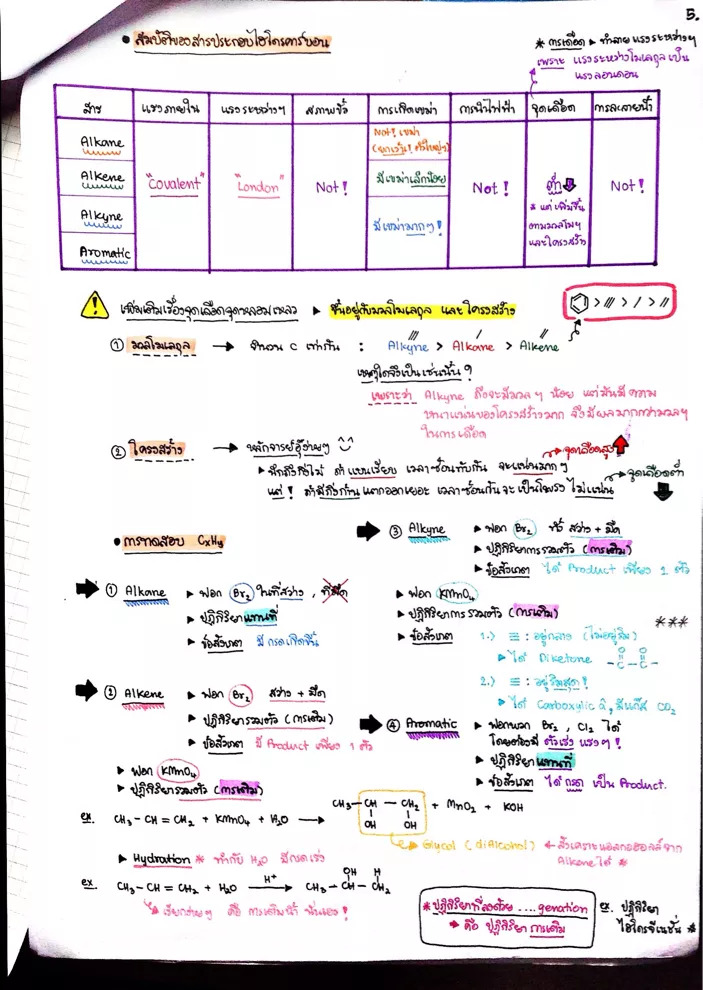 5.
• สมบัติของสารประกอบไฮโดรคาร์บอน
* การเดือด ▸ ทำลายแรงระหว่างฯ
เพราะ แรงระหว่างโมเลกุลเป็น
แรงลอนดอน
สาร แรงภายใน แรงระหว่างฯ สภาพขั้ว การเกิดเขม่า การนำไฟฟ้า จุดเดือด การละลายน้ำ
Alkane
Alkene
Alkyne
Aromatic
"Covalent"
"London"
Not!
Not! เขม่า
(ยกเว้น! ตัวใหญ่ๆ)
มีเขม่าเล็กน้อย
มีเขม่ามากๆ!
Not!
ต่ำ
* แต่เพิ่มขึ้น
ตามมวลโมฯ
และโครงสร้าง
Not!
! เพิ่มเติมเรื่องจุดเดือดจุดหลอมเหลว ▸ ขึ้นอยู่กับมวลโมเลกุล และโครงสร้าง
① มวลโมเลกุล → จำนวน C เท่ากัน : Alkyne > Alkane > Alkene
เหตุใดจึงเป็นเช่นนั้น?
เพราะว่า Alkyne ถึงจะมีมวลฯ น้อย แต่มันมีความ
หนาแน่นของโครงสร้างมาก จึงมีผลมากกว่ามวลฯ
ในการเดือด
② โครงสร้าง → หลักจารย์อุ๊ง่ายๆ
จุดเดือดสูง
แต่! ถ้ามีกิ่งก้านแตกออกเยอะ เวลาซ้อนกันจะเป็นโพรง ไม่แน่น
จุดเดือดต่ำ
• การทดสอบ CxHy
① Alkane ▸ ฟอก Br₂ ในที่สว่าง, ที่มืด
▸ ปฏิกิริยาแทนที่
▸ ข้อสังเกต มีกรดเกิดขึ้น
② Alkene ▸ ฟอก Br₂ สว่าง + มืด
▸ ปฏิกิริยารวมตัว (การเติม)
▸ ข้อสังเกต มี Product เพียง 1 ตัว
▸ ฟอก KMnO₄
▸ ปฏิกิริยารวมตัว (การเติม)
③ Alkyne ▸ ฟอก Br₂ ทั้ง สว่าง + มืด
▸ ปฏิกิริยาการรวมตัว (การเติม)
▸ ข้อสังเกต ได้ Product เพียง 1 ตัว
▸ ฟอก KMnO₄
▸ ปฏิกิริยาการรวมตัว (การเติม)
▸ ข้อสังเกต 1.) ≡ : อยู่กลาง (ไม่อยู่ริม) ***
▸ ได้ Diketone -C-C-
O O
2.) ≡ : อยู่ริมสุด!
▸ ได้ Carboxylic a, มีแก๊ส CO₂
④ Aromatic ▸ ฟอกพวก Br₂, Cl₂ ได้
โดยต้องมี ตัวเร่ง แรงๆ!
▸ ปฏิกิริยาแทนที่
▸ ข้อสังเกต ได้กรด เป็น Product.
ex. CH₃-CH=CH₂ + KMnO₄ + H₂O → CH₃-CH-CH₂ + MnO₂ + KOH
OH OH
Glycol (diAlcohol) ← สังเคราะห์แอลกอฮอล์จาก
Alkene ได้ *
▸ Hydration * ทำกับ H₂O มีกรดเร่ง
ex. CH₃-CH=CH₂ + H₂O H⁺→ CH₃-CH-CH₂
OH H
เรียกง่ายๆ คือ การเติมน้ำ นั่นเอง!
* ปฏิกิริยาที่ลงด้วย ....genation
▸ คือ ปฏิกิริยา การเติม
ex. ปฏิกิริยา
ไฮโดรจีเนชั่น *